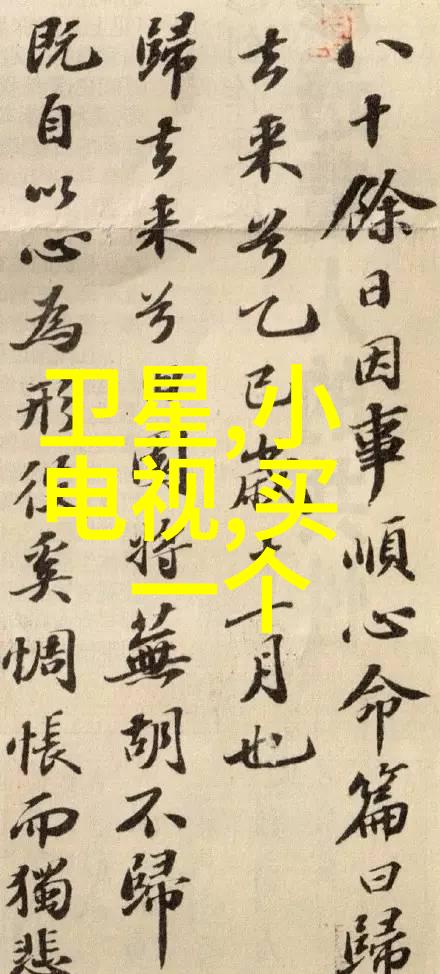 卫星,小
电视,买
一个
八十餘日因事順心命篇曰歸
去来兮乙巳歲十一月也
歸去来兮田園將蕪胡不歸
既自以心為形役奚惆悵而獨悲